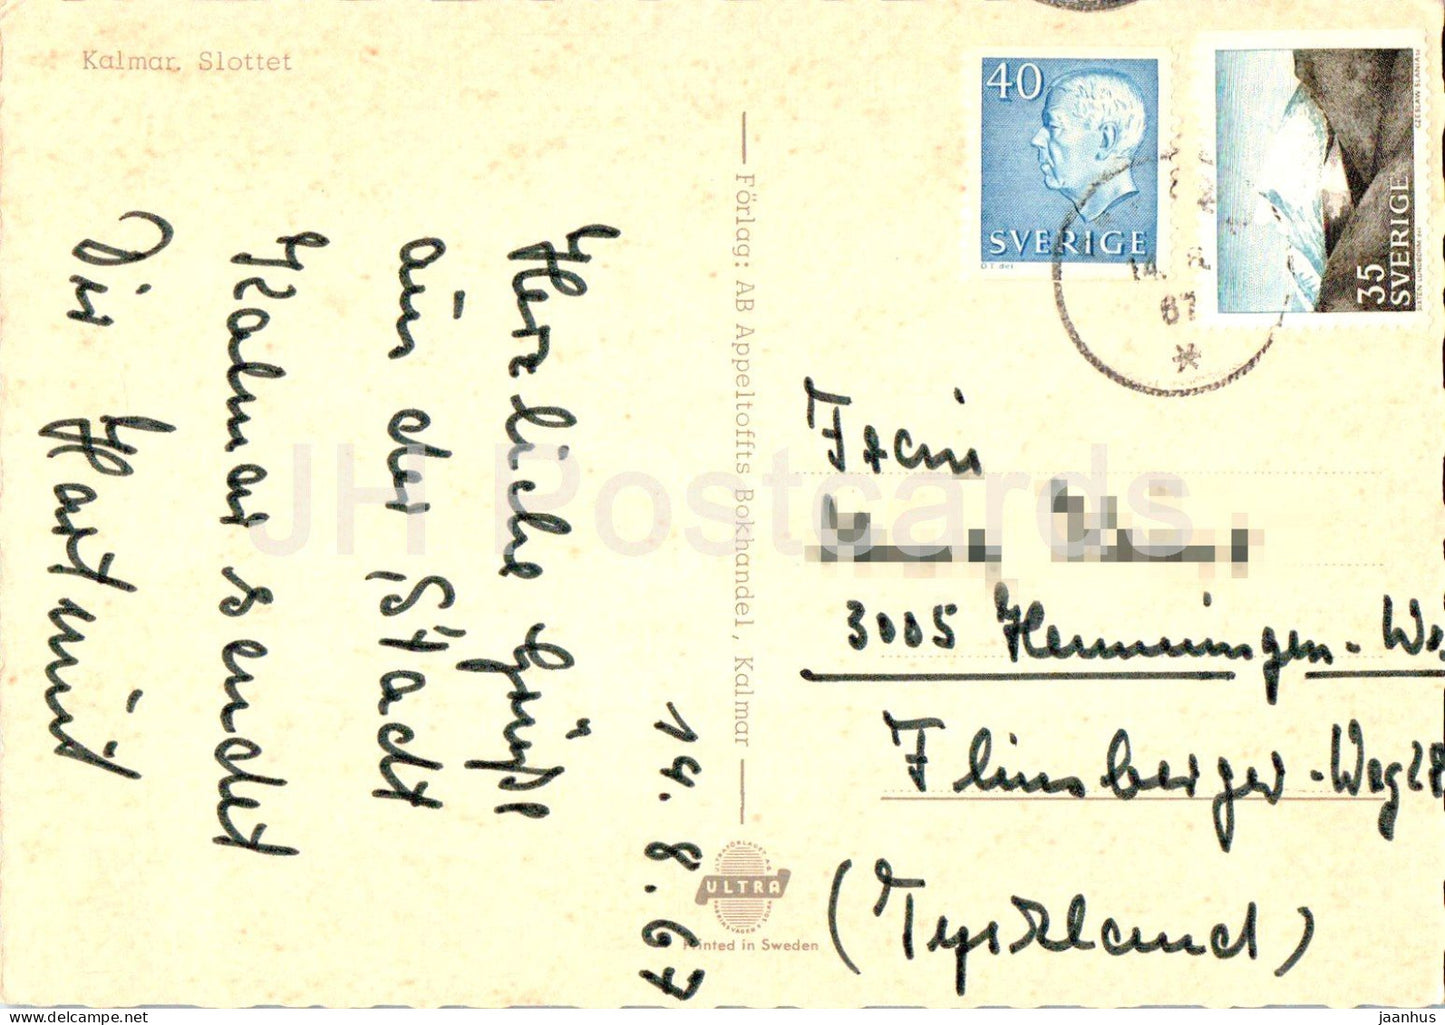 Kalmar. Slottet
Herzliche Grüße
aus der Stadt
Kalmar sendet
Dir Hartmut
14.8.67
Förlag: AB Appeltoffts Bokhandel, Kalmar
ULTRA
Printed in Sweden
40
SVERIGE
35
SVERIGE
CZESLAW SLANIA SC
14. 8
67
Frau
3005 Hemmingen-We
Flimsberger-Weg 28
(Tyskland)
JH Postcards
jaanhus © HipPostcard.com